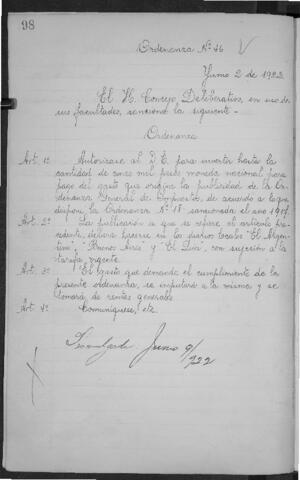 98
Ordenanza Nº 46 V
Junio 2 de 1922
El H. Concejo Deliberativo, en uso de
sus facultades, sancionó la siguiente-
Ordenanza
Art. 1º Autorízase al D. E. para invertir hasta la
cantidad de mil pesos moneda nacional para
pago del gasto que origina la publicidad de la Or-
denanza General de Impuestos, de acuerdo a lo que
dispone la Ordenanza Nº 18 sancionada el año
Art. 2º La publicación a que se refiere el artículo prece-
dente, deberá hacerse en los diarios locales "El Argen-
tino", "Buenos Aires" y "El Día", con sujeción a la
tarifa vigente.
Art. 3º El gasto que demande el cumplimiento de la
presente ordenanza, se imputará a la misma y se
tomará de rentas generales
Art. 4º Comuníquese, etc.
Promulgada Junio 9/922